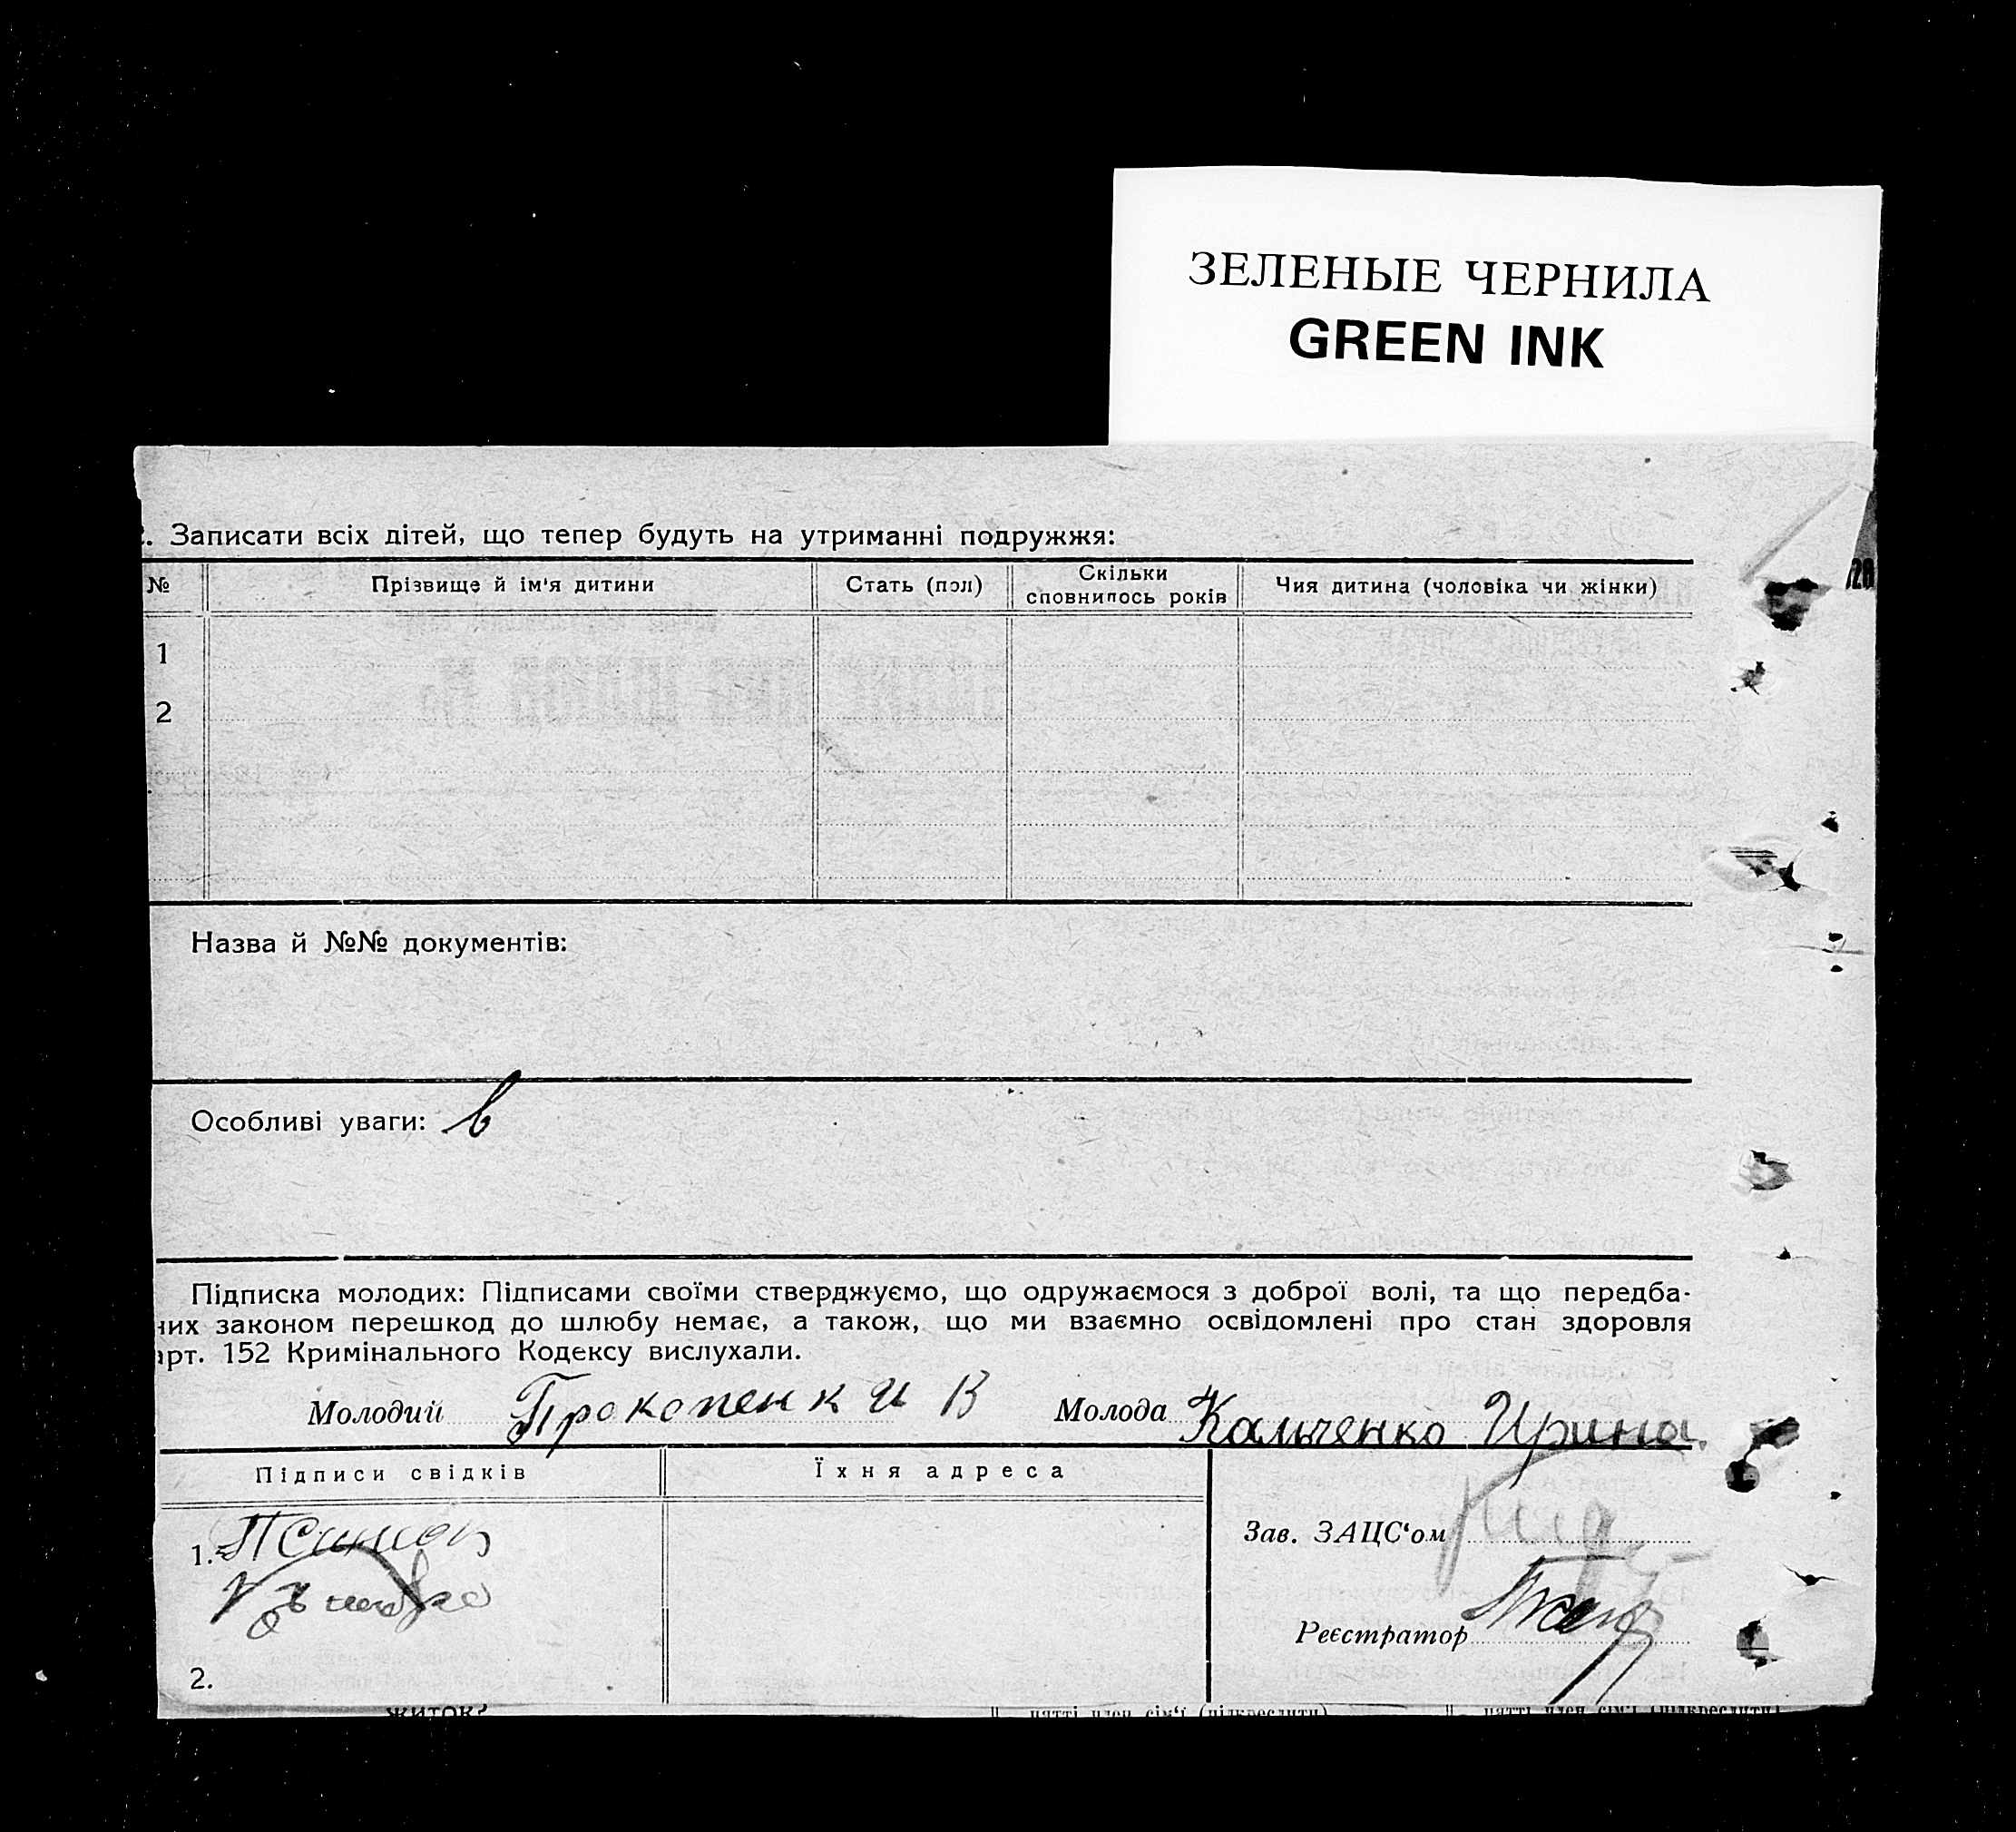 ЗЕЛЕНЫЕ ЧЕРНИЛА
GREEN INK
. Записати всіх дітей, що тепер будуть на утриманні подружжя:
№ Прізвище й ім'я дитини Стать (пол) Скільки сповнилось років Чия дитина (чоловіка чи жінки)
1
2
Назва й №№ документів:
Особливі уваги: в
Підписка молодих: Підписами своїми стверджуємо, що одружаємося з доброї волі, та що передба-
них законом перешкод до шлюбу немає, а також, що ми взаємно освідомлені про стан здоровля
арт. 152 Кримінального Кодексу вислухали.
Молодий Прокопенк И В Молода Кальченко Ирина
Підписи свідків Їхня адреса
1.
Зав. ЗАЦС‘ом
Реєстратор
2.
житок?